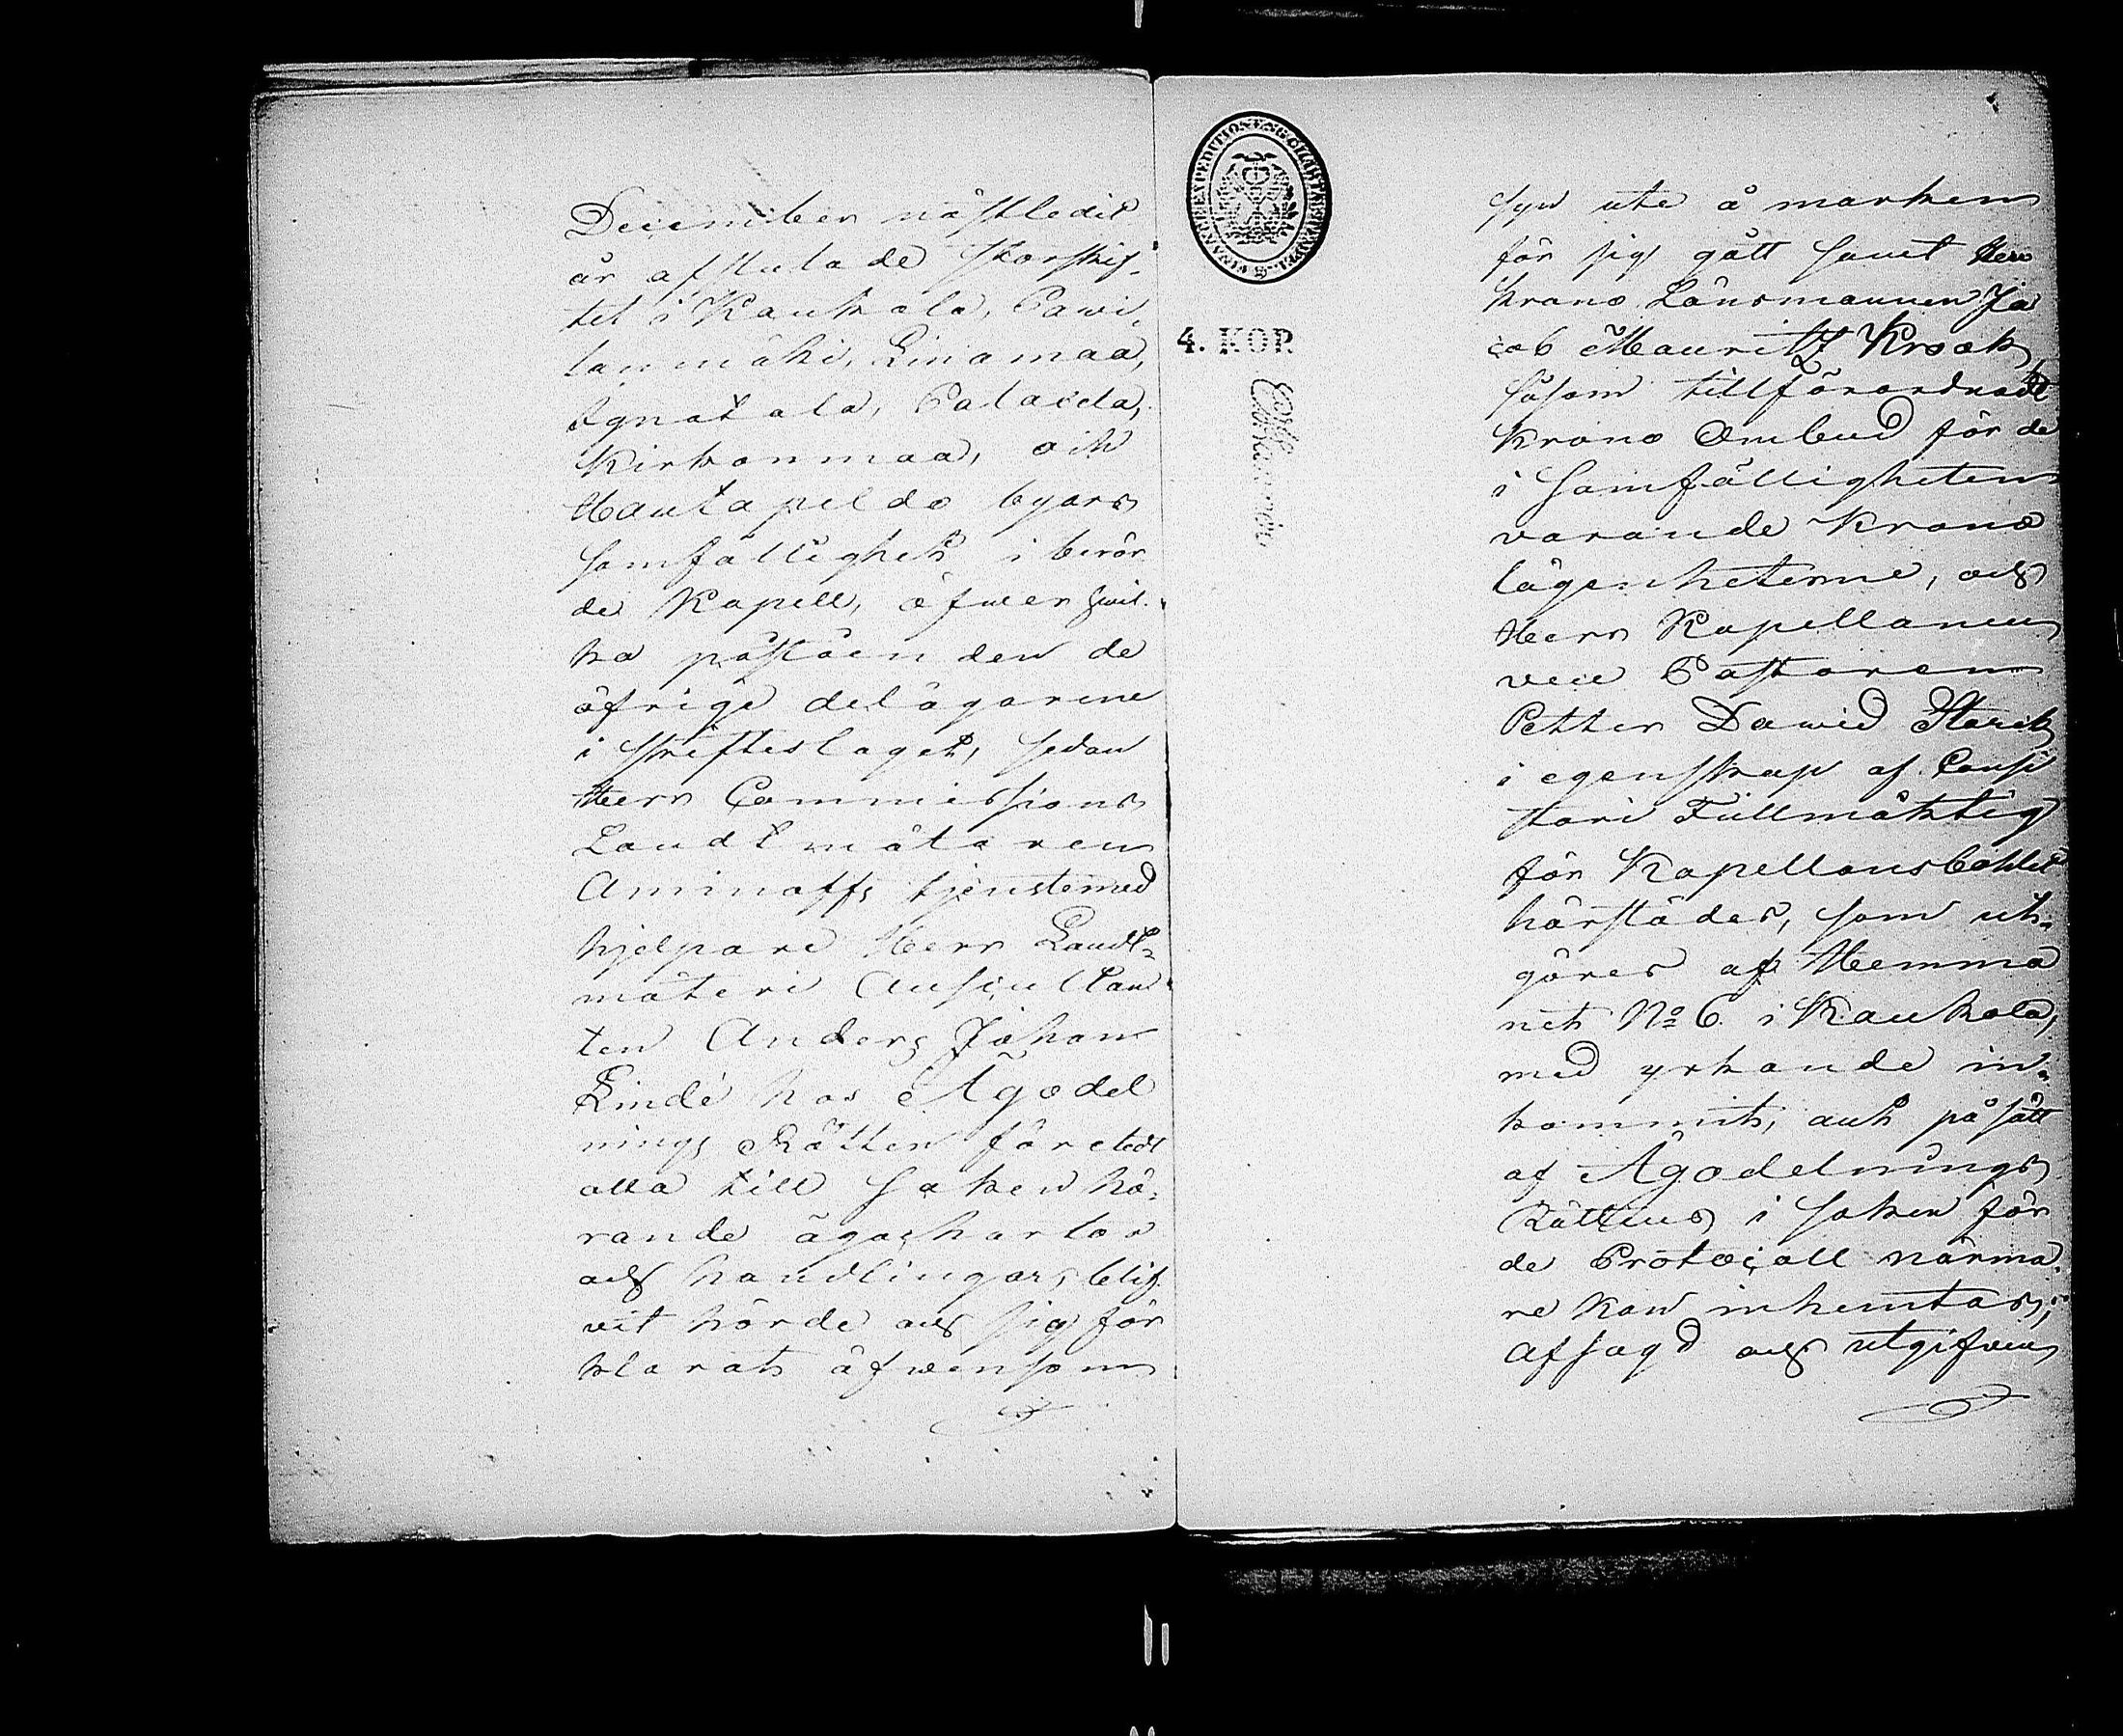 December nästledit
år afslutade storskif¬
tet i Kaukola, Pawi¬
lanmäki, Liinamaa,
Ignatala, Palaeda,
Kirkonmaa, och
Hautapeldo byars
samfällighet i berör
de Kapell, öfwer hwil¬
ka påståenden de
öfrige delägarene
i skifteslaget, sedan
Herr Commissions
Landtmätaren
Aminoffs tjenstemed
hjelpare Herr Landt¬
mäteri Auscultan
ten Anders Johan
Lindé hos Ägodel
nings Rätten företedt
alla till saken hö¬
rande ägochartor
och handlingar, blif
vit hörde och sig för
klarat äfwensom
syn ute å marken
för sig gått samt Herr
Krono Länsmannen Ja
cob Mauritz Krook,
såsom tillförordnadt
Krono Ombud för de
i samfälligheten
varande Krono
lägenheterne, och
Herr Kapellanen
vice Pastoren
Petter Dawid Starck
i egenskap af Consi
storii Fullmäktig
för Kapellansbohlet
härstädes, som ut¬
göres af Hemma
net No 6 i Kaukola,
med yrkande in¬
kommit, allt på sätt
af Ägodelnings
Rättens i saken för
de Protocoll närma¬
re kan inhemtas;
afsagd och utgifven
4. KOP.